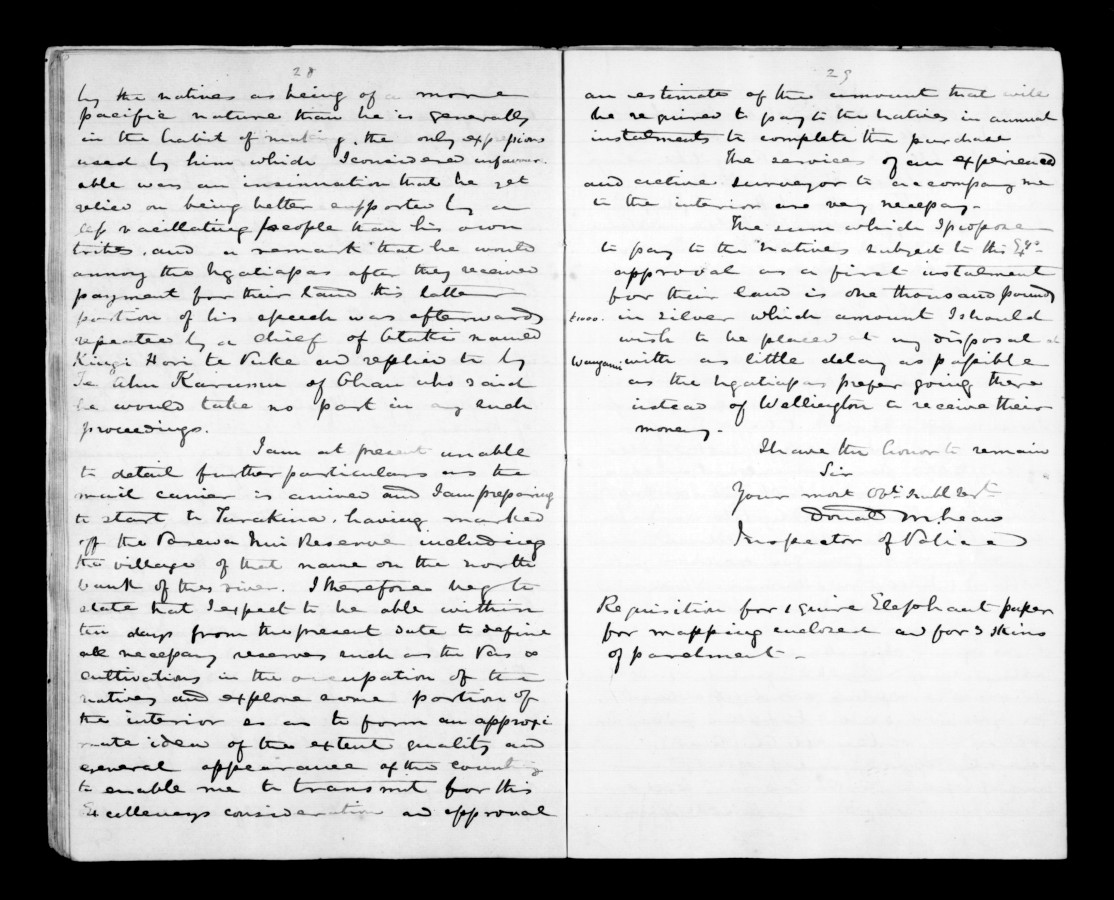 28
by the natives as being of a more
pacific nature than he is generally
in the habit of making, the only expression
used by him which I considered unfavour
able was an insinuation that he yet
relied on being better supported by an
less vacillating people than his own
tribes, and a remark that he would
annoy the Ngatiapas after they received
payment for their land this latter
portion of his speech was afterwards
repeated by a chief of Otaki named
Kingi Hori te Puke and replied to by
Te Ahu Karamu of Ohau who said
he would take no part in any such
proceedings.
I am at present unable
to detail further particulars as the
mail carrier is arrived and I am preparing
to start to Turakina, having marked
off the Parewa Nui Reserve including
the village of that name on the north
bank of the river. I therefore beg to
state that I expect to be able within
ten days from the present date to define
all necessary reserves such as the Pas &
cultivations in the occupation of the
natives and explore some portion of
the interior so as to form an approxi
mate idea of the extent quality and
general appearance of the country
to enable me to transmit for His
Excellencys consideration and approval
29
an estimate of the amount that will
be required to pay to the natives in annual
instalments to complete the purchase
The services of an experienced
and active surveyor to accompany me
to the interior are very necessary.
The sum which I propose
to pay to the natives subject to His Exys
approval as a first instalment
for their land is one thousand pounds
£1000. in silver which amount I should
wish to be placed at my disposal at
Wanganui with as little delay as possible
as the Ngatiapas prefer going there
instead of Wellington to receive their
money.
I have the honor to remain
Sir
Your most Obt Humbl Servt
Donald McLean
Inspector of Police
Requisition for 1 quire Elephant paper
for mapping enclosed and for 3 skins
of parchment.